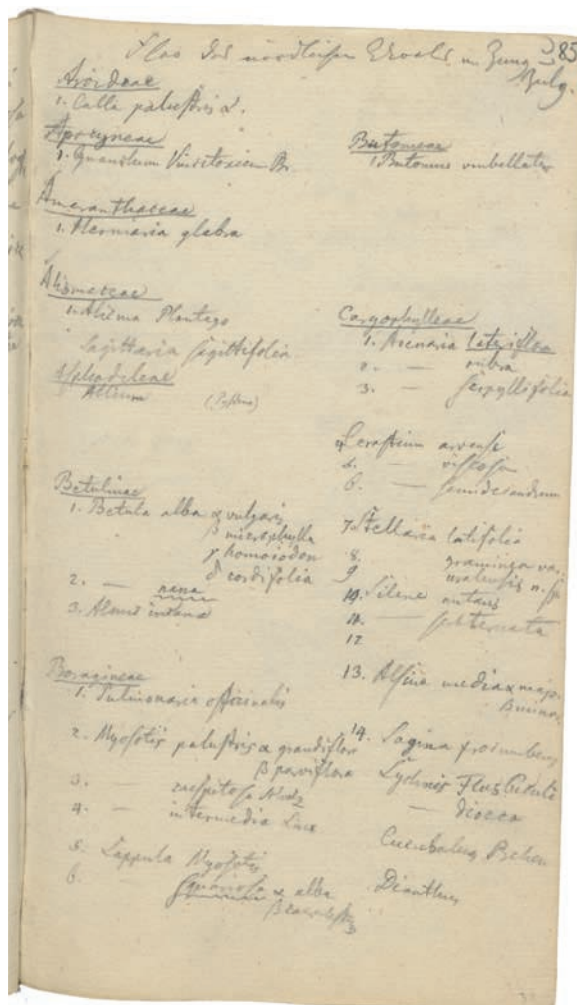 85
Flor des nördlichen Urals
Aroideae
1. Calla palustris α.
Apocyneae
1. Cynanchum Vincetoxicum Br.
Amaranthaceae
1. Herniaria glabra
Alismaceae
1. Alisma Plantago
Sagittaria sagittifolia
Asphodeleae
Allium
Betulinae
1. Betula alba α vulgaris
β microphylla
γ homoiodon
δ cordifolia
2. — nana
3. Alnus incana
Boragineae
1. Pulmonaria officinalis
2. Myosotis palustris α grandiflora
β parviflora
3. — caespitosa
4. — intermedia Link
5. Lappula Myosotis
6. — squarrosa α alba
Butomeae
1. Butomus umbellatus
Caryophylleae
1. Arenaria lateriflora
2. — rubra
3. — serpyllifolia
4. Cerastium arvense
5. — viscosum
6. — semidecandrum
7. Stellaria latifolia
8. graminea var.
9 uralensis n. sp
10. Silene nutans
11. —
12
13. Alsine media α major
β minor
14. Sagina procumbens
Lychnis Flos Cuculi
— dioica
Cucubalus Behen
Dianthus